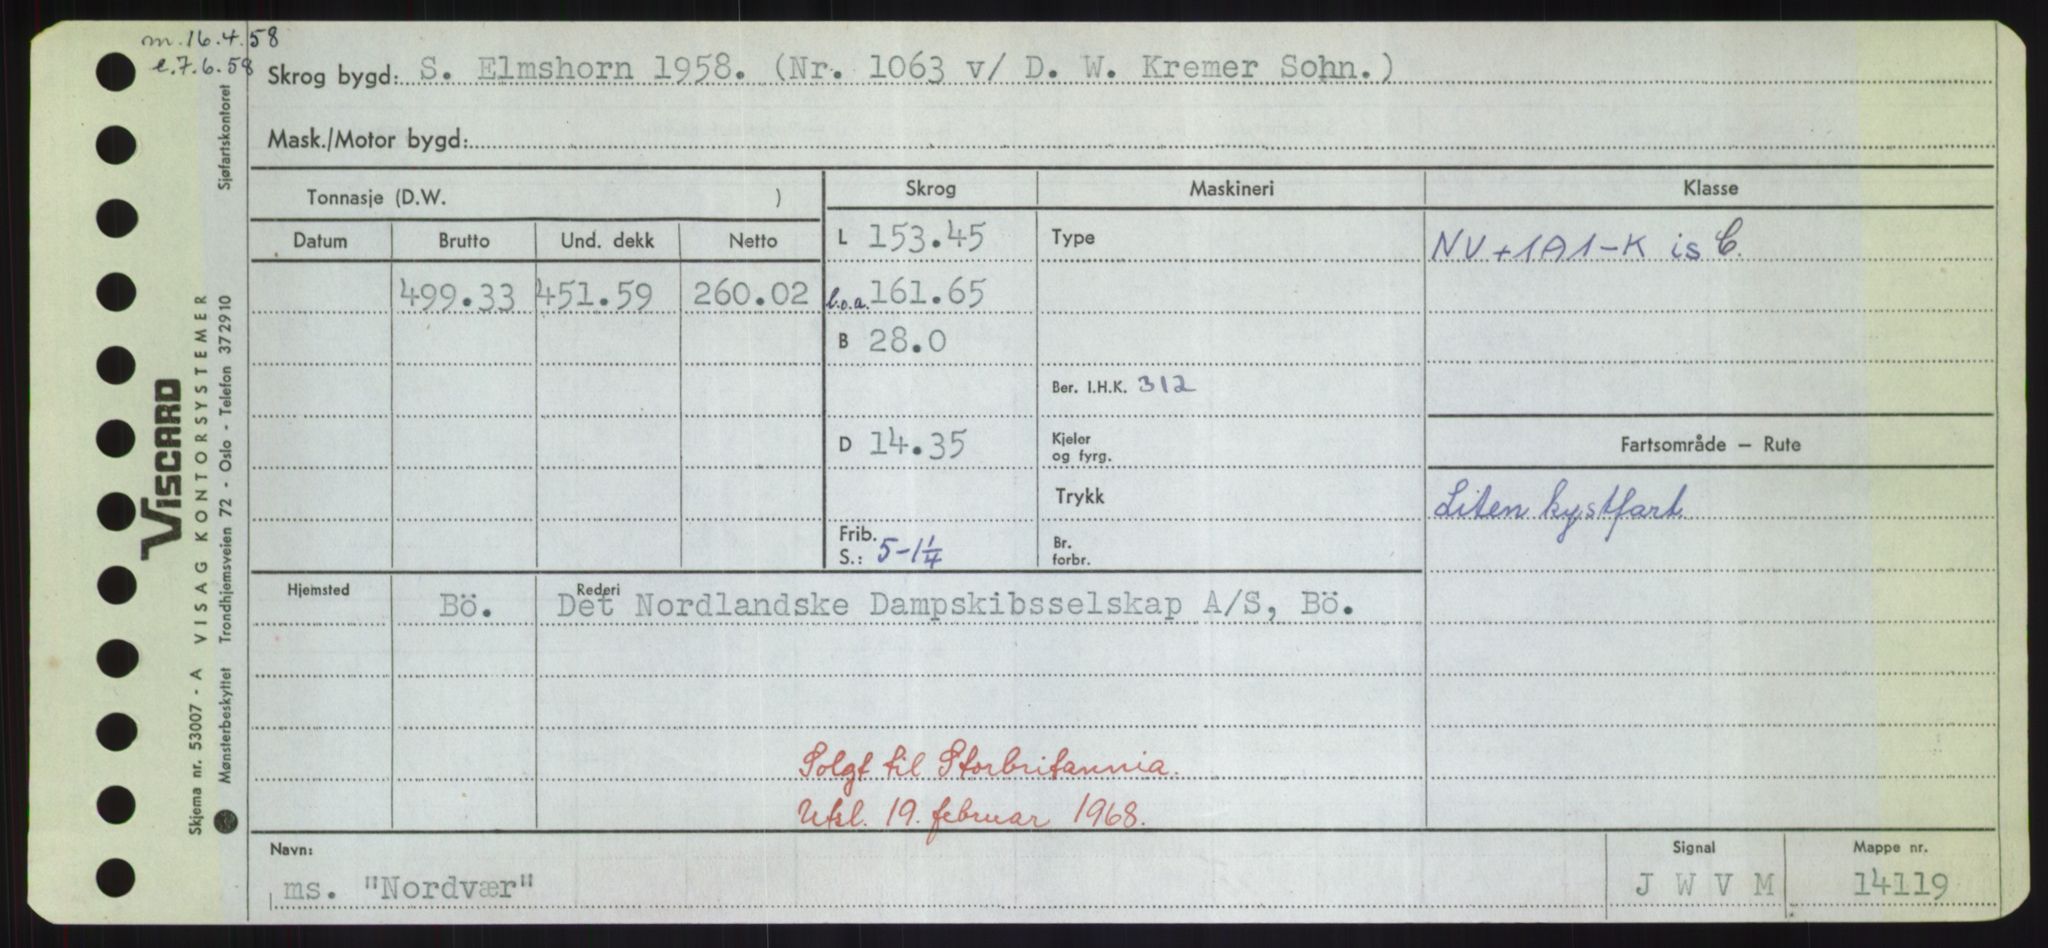 m. 16.4.58
e. 7.6.58
Skrog bygd: S. Elmshorn 1958. (Nr. 1063 v/ D. W. Kremer Sohn.)
Mask./Motor bygd:
Tonnasje (D.W. )
Skrog
Maskineri
Klasse
Datum
Brutto
Und. dekk
Netto
L 153.45
Type
NV+1A1-K is C.
499.33 451.59 260.02
l.o.a. 161.65
B 28.0
Ber. I.H.K. 312
D 14.35
Kjeler
og fyrg.
Fartsområde — Rute
Trykk
Liten kystfart
Frib.
S.: 5-1¼
Br.
forbr.
Hjemsted
Bö.
Rederi
Det Nordlandske Dampskibsselskap A/S, Bö.
Solgt til Storbritannia.
Utsl. 19. februar 1968.
Navn:
ms. "Nordvær"
Signal
J W V M
Mappe nr.
14119
VISCARD
VISAG KONTORSYSTEMER
Skjema nr. 53007 - A
Mønsterbeskyttet Trondhjemsveien 72 - Oslo - Telefon 372910
Sjøfartskontoret